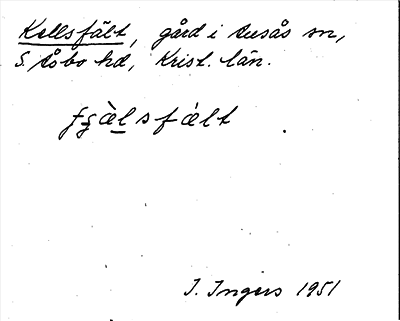 Kellsfält, gård i Lusås sn,
S. Åsbo hd, Krist. län.
I. Ingers 1951